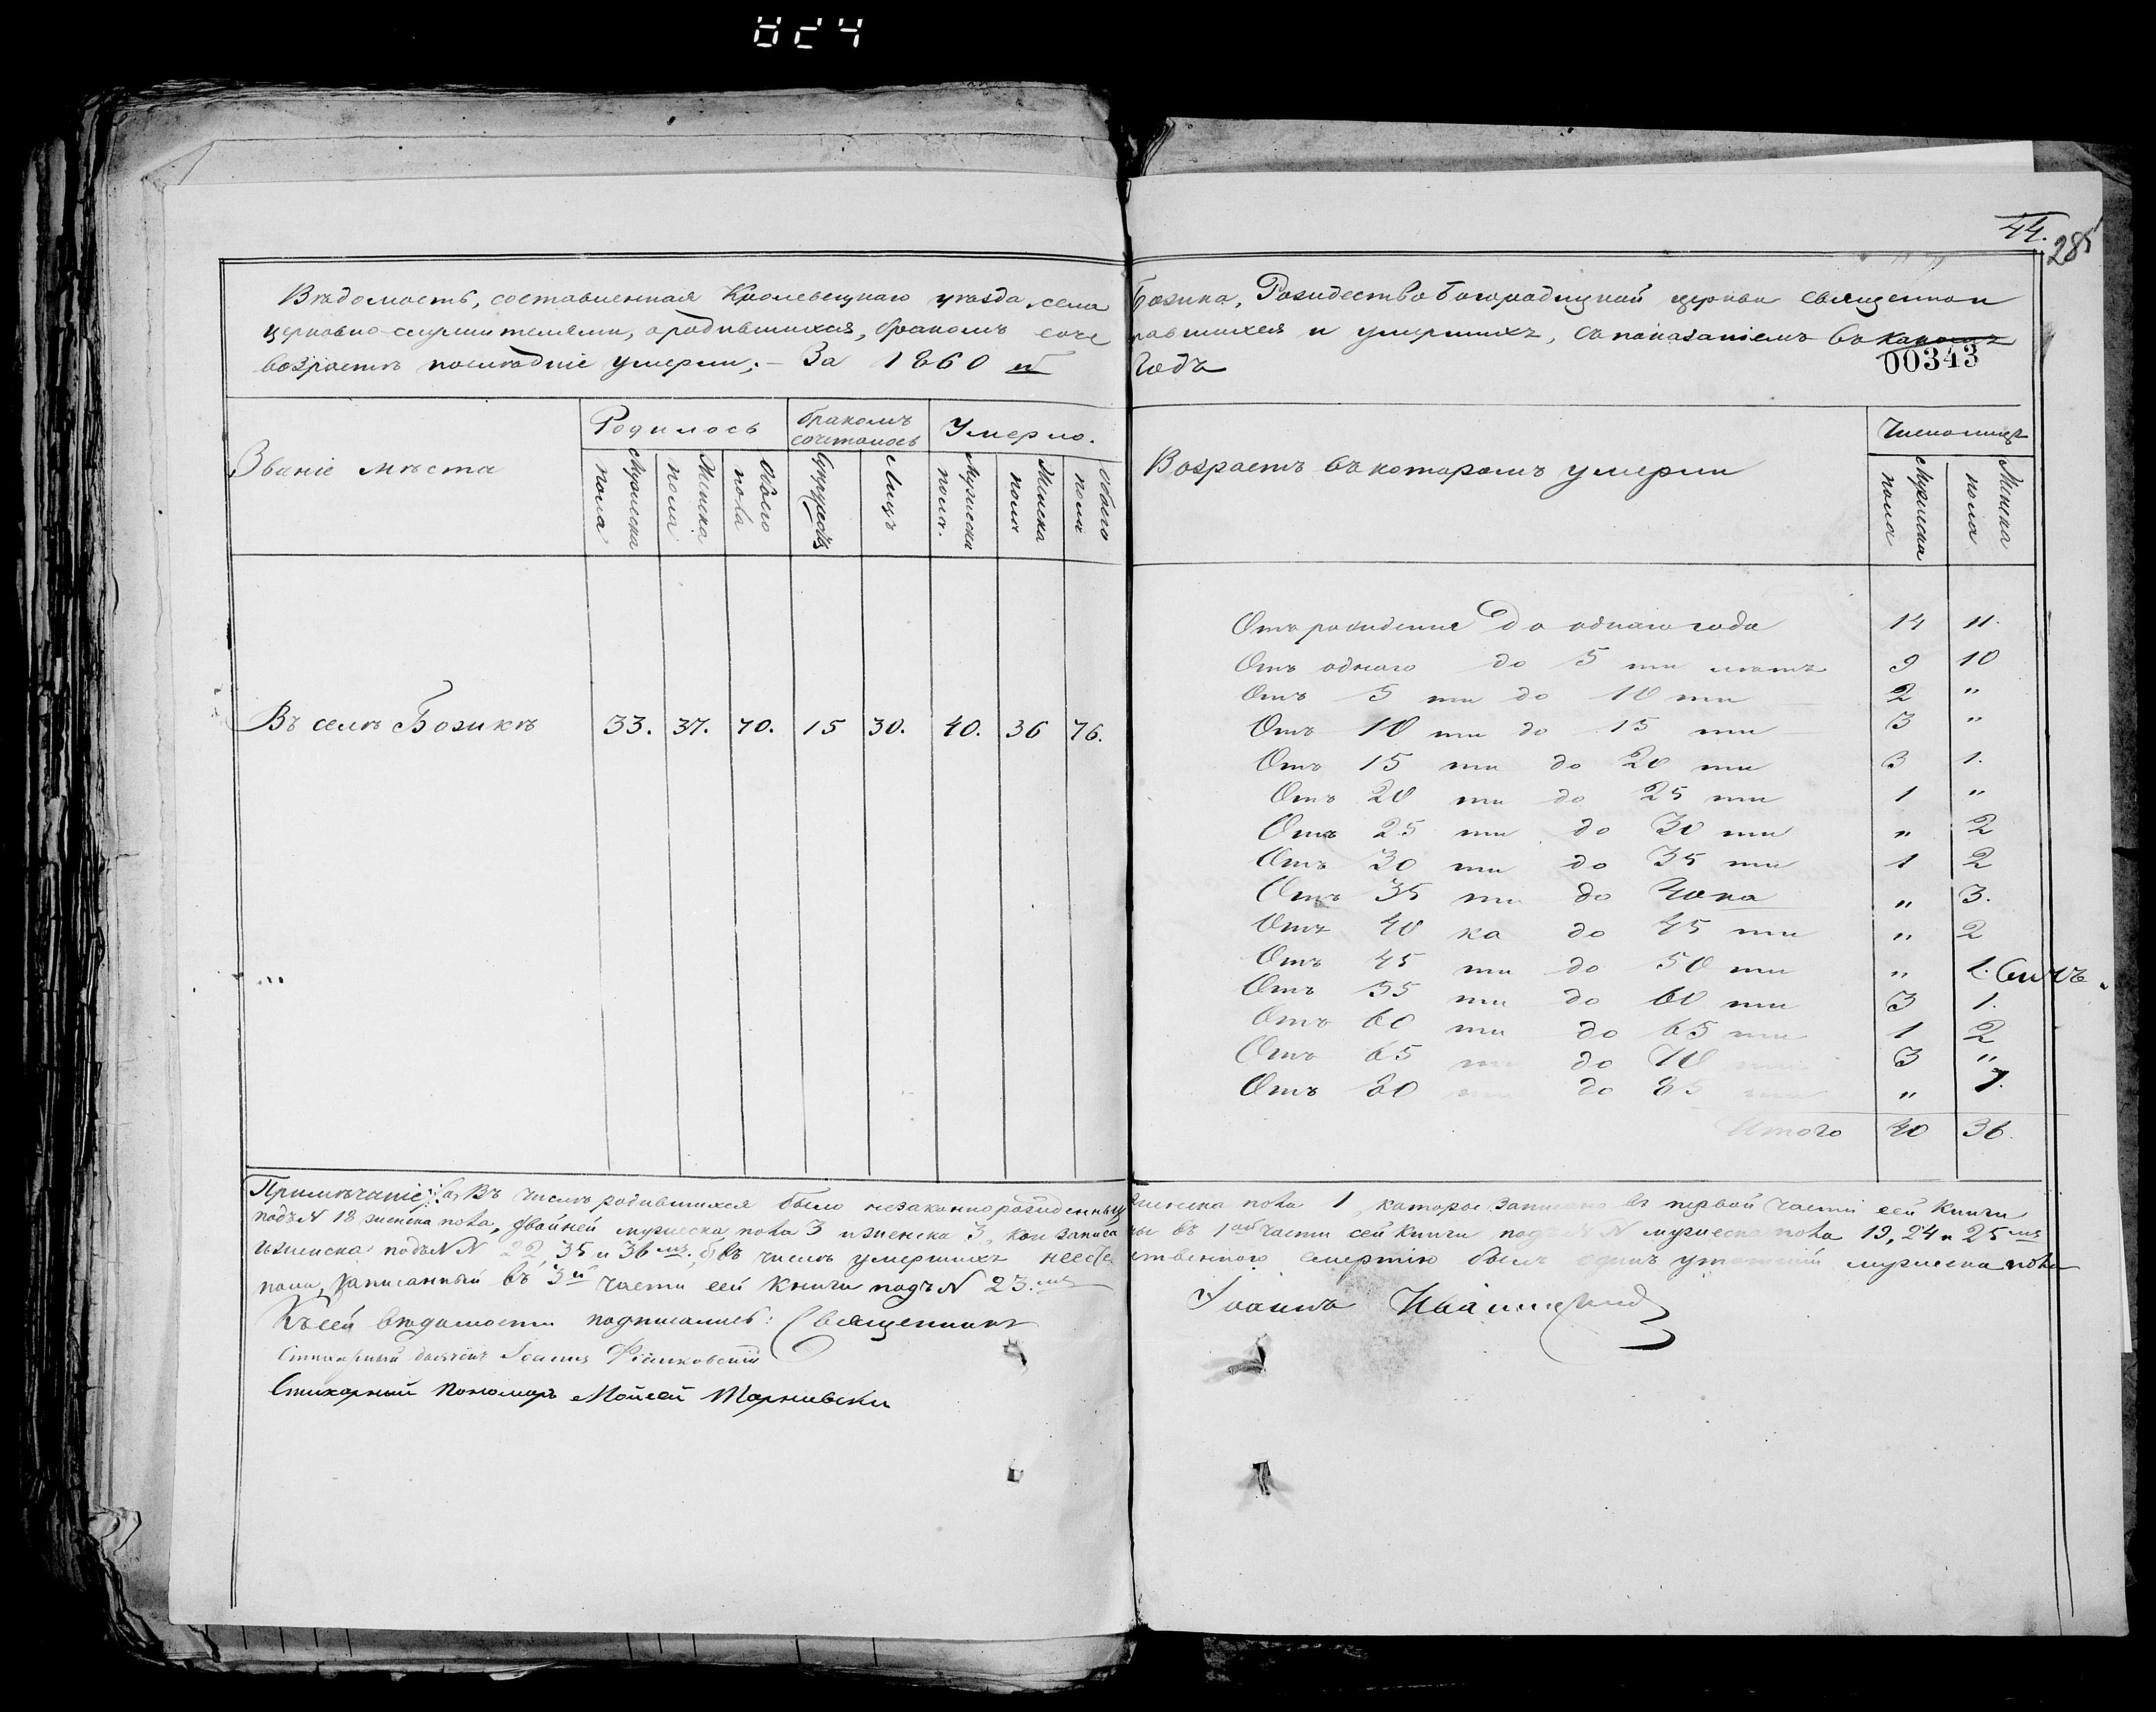 44.
285
Вѣдомость, составленная Кролевецкаго уѣзда, села Божика, Рождество Богородицкой церкви священно и
церковно служителями, о родившихся, бракомъ сочетавшихся и умершихъ, съ показаніемъ въ какомъ
возрастѣ послѣдніе умерли; – За 1860 й Годъ
00343
Званіе мѣста
Родилось
бракомъ сочеталось
Умерло.
Мужеска пола
Женска пола
Обоего пола
Супружествъ
Лицъ
Мужеска пола.
Женска пола
Обоего пола
Возрастъ въ которомъ умерли
Число лицъ
Мужеска пола
Женска пола
Въ селѣ Божикѣ 33. 37. 70. 15 30. 40. 36 76.
Отъ рожденія до однаго года 14 11.
Отъ однаго до 5 ти лѣтъ 9 10
Отъ 5 ти до 10 ти 2 "
Отъ 10 ти до 15 ти 3 "
Отъ 15 ти до 20 ти 3 1.
Отъ 20 ти до 25 ти 1 "
Отъ 25 ти до 30 ти " 2
Отъ 30 ти до 35 ти 1 2
Отъ 35 ти до 40 ка " 3.
Отъ 40 ка до 45 ти " 2
Отъ 45 ти до 50 ти "
Отъ 55 ти до 60 ти 3 1.
Отъ 60 ти до 65 ти 1 2
Отъ 65 ти до 70 3 "
Отъ 80 до 85 "
Итого 40 36.
Примѣчаніе: а, Въ числѣ родившихся было незаконно рожденныхъ женска пола 1, которое записано въ первой части сей книги
подъ N 18 женска пола, двойней мужеска пола 3 и женска 3, кои записаны въ 1ой части сей книги подъ N мужеска пола 19, 24 и 25 мъ
и женска подъ N N 22, 35 и 36 мъ. б, въ числѣ умершихъ неестественною смертію былъ одинъ мужеска пола
пола, записанный въ 3й части сей книги подъ N 23. мъ
Къ сей вѣдомости подписались: Священникъ Іоаннъ
Стихарный дьячекъ Іоаннъ
Стихарный Пономарь Мойсей